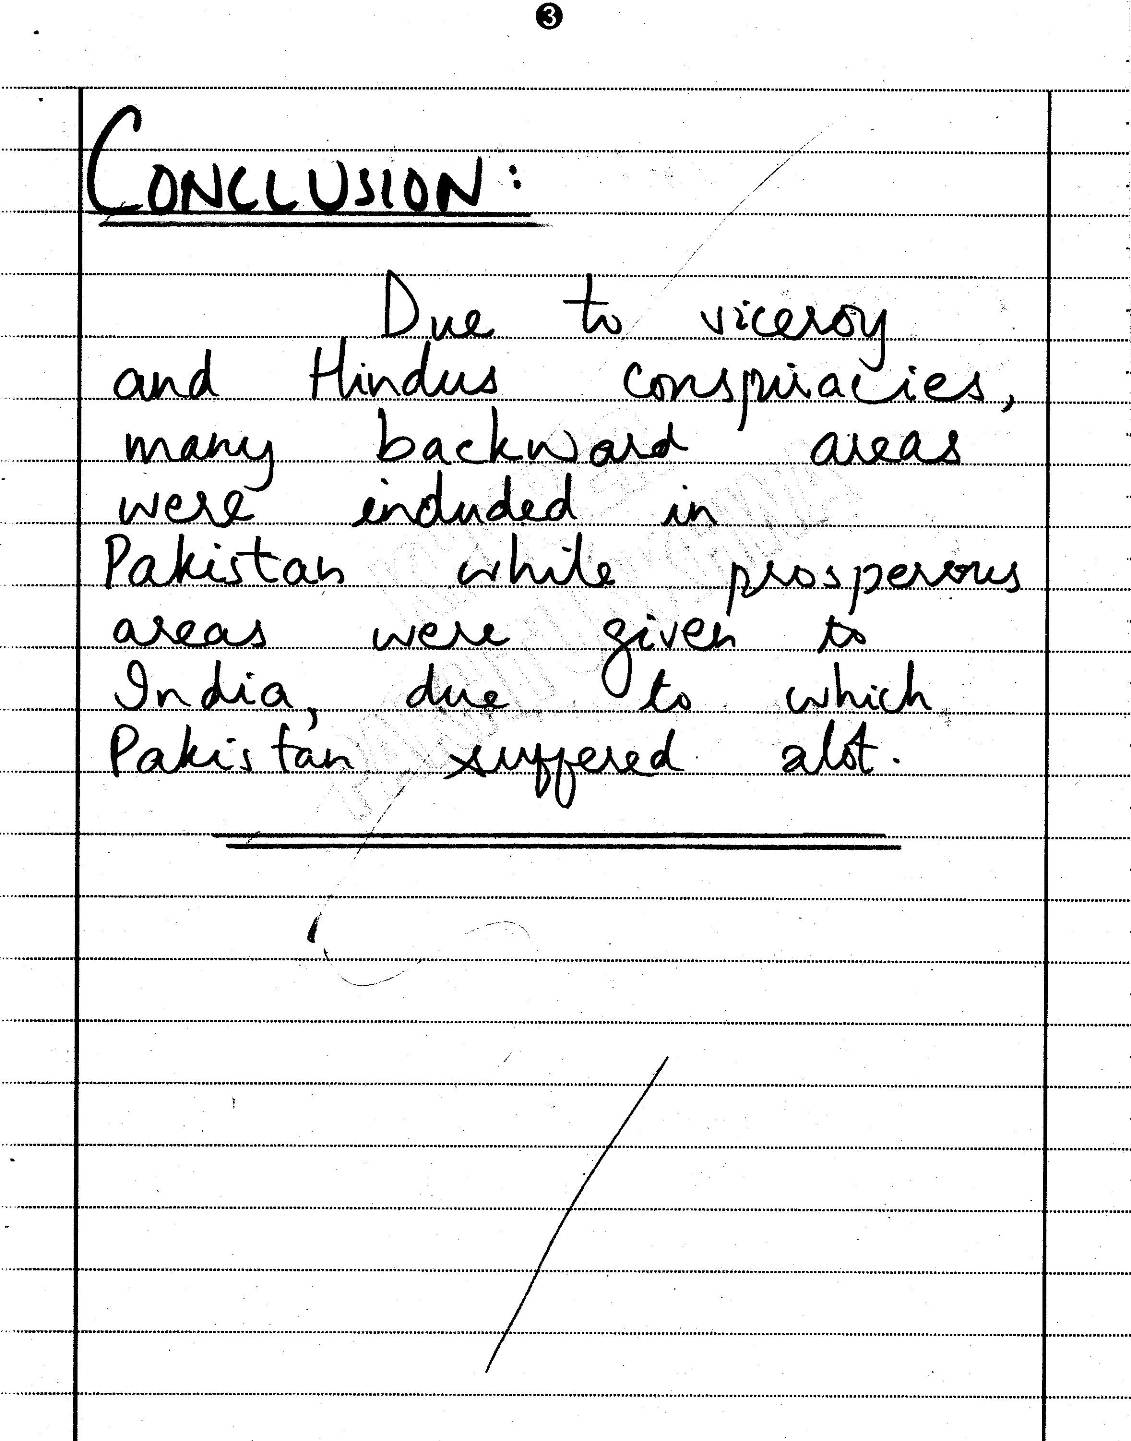 3
CONCLUSION:
Due to viceroy
and Hindus conspiracies,
many backward areas
were included in
Pakistan while prosperous
areas were given to
India, due to which
Pakistan suffered alot.